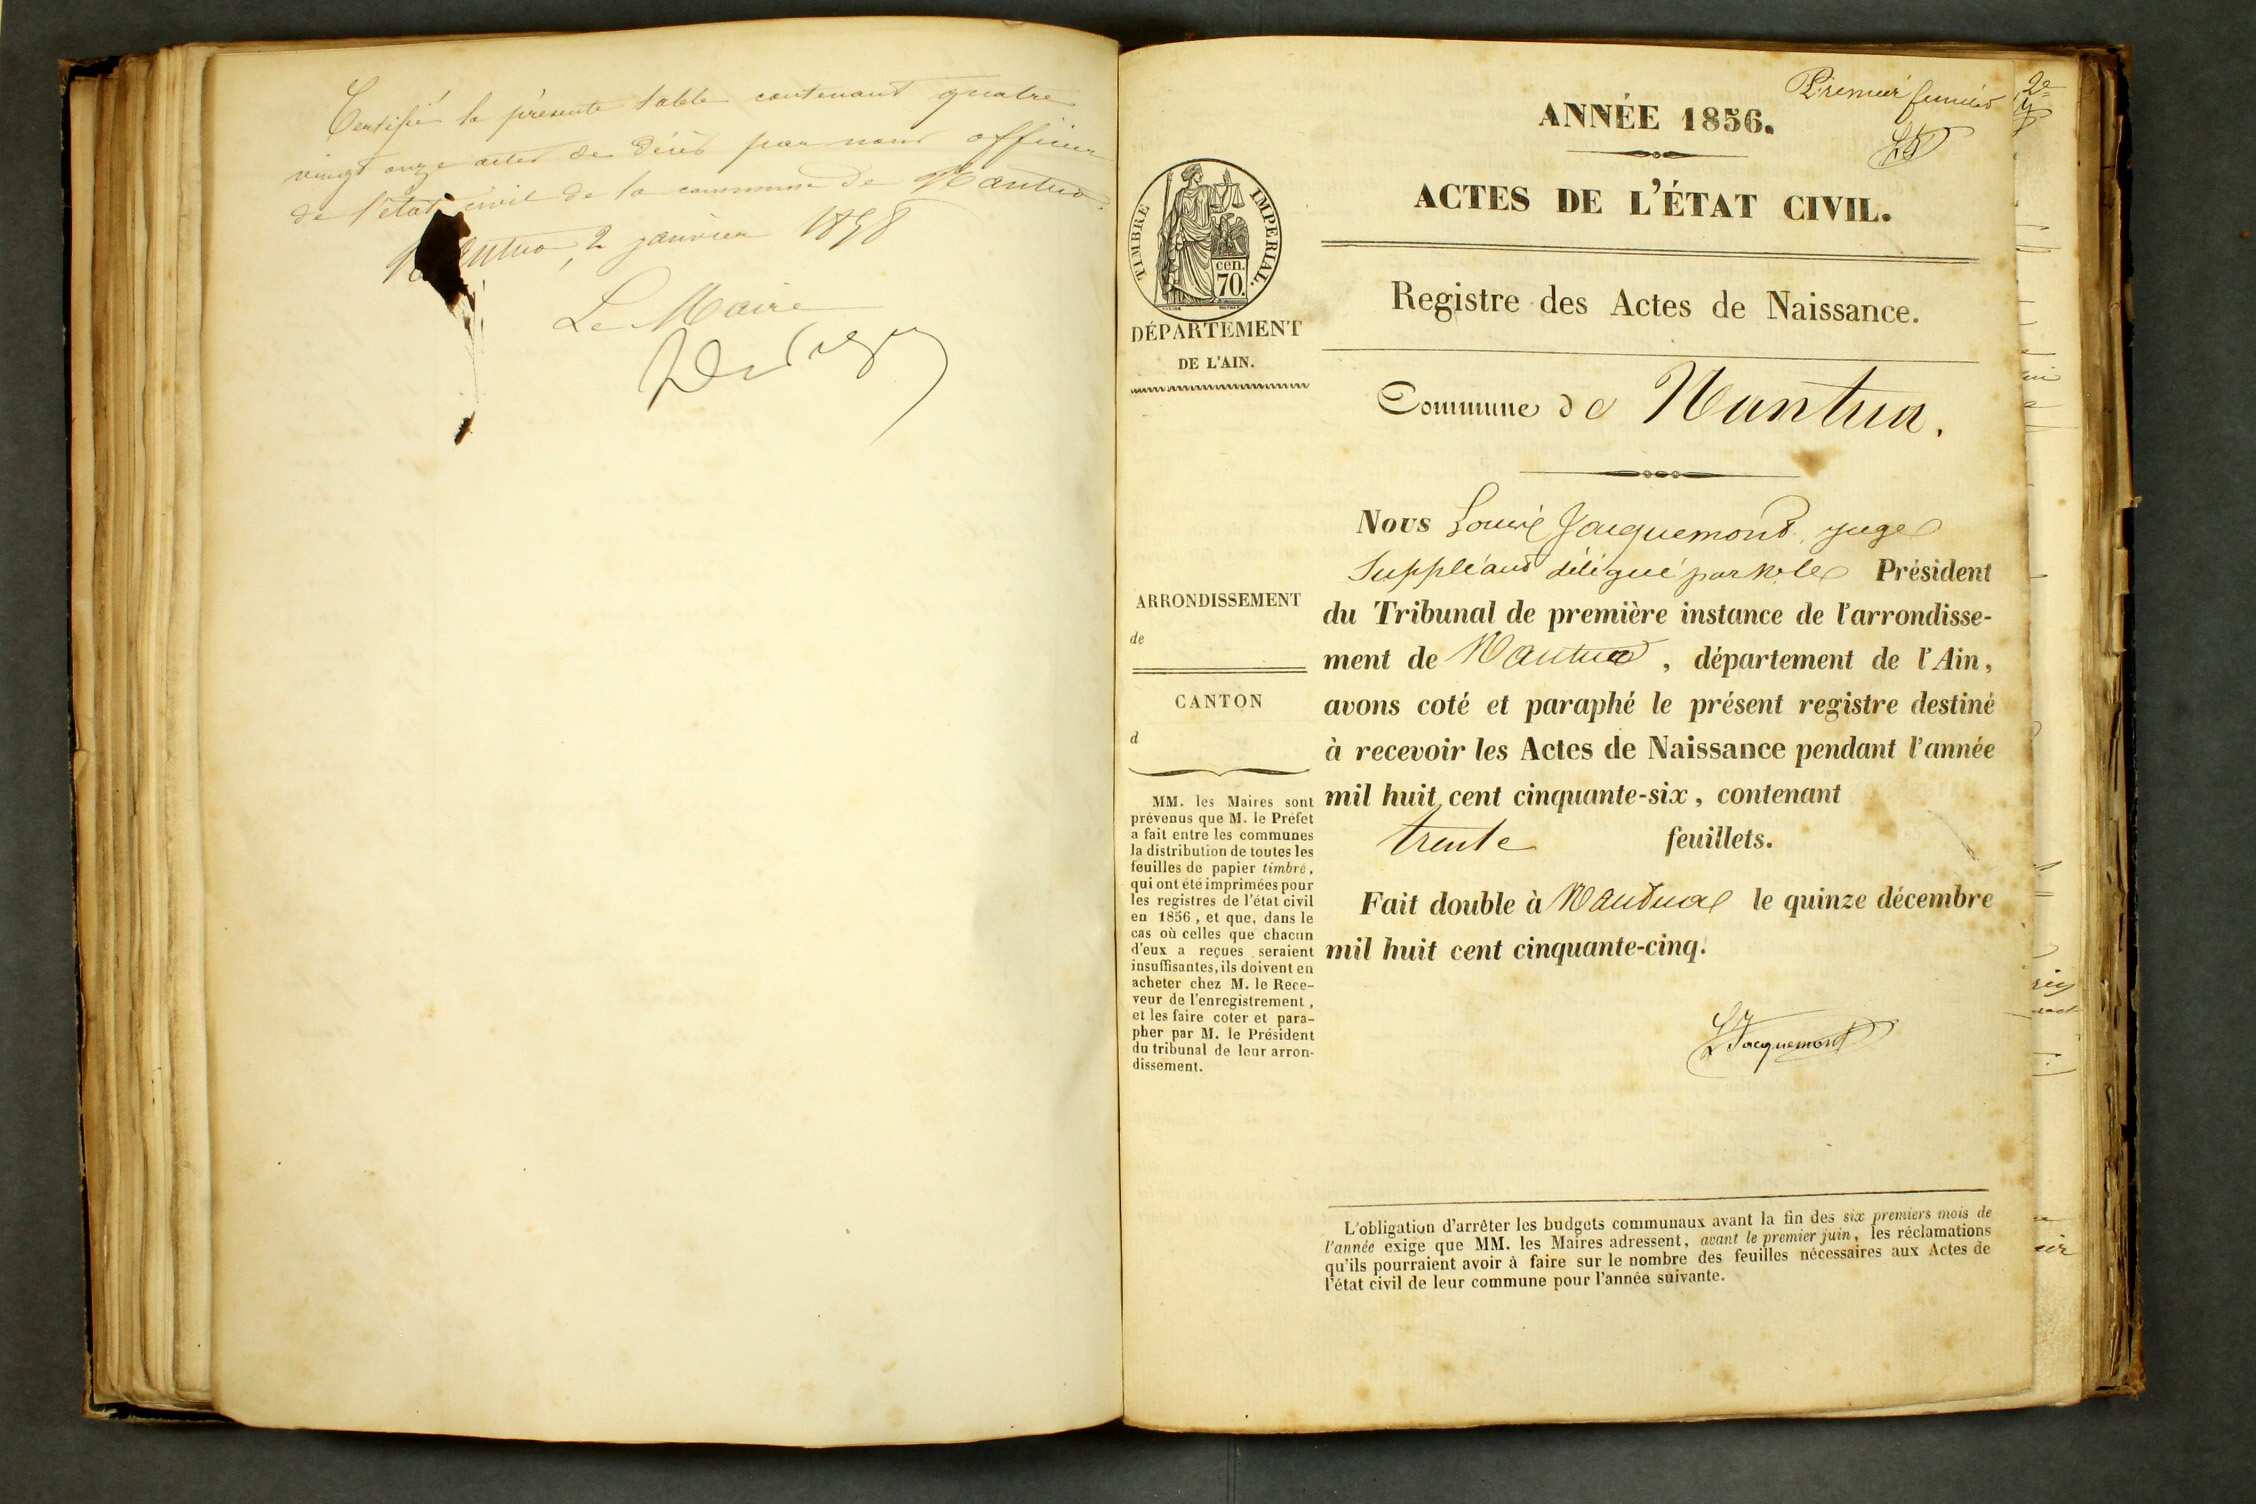 Certifié la présente table contenant quatre
vingt onze actes de décès par nous officier
de l'état civil de la commune de Nantua.
Nantua, 2 janvier 1858
Le Maire
Premier feuillet
2e
ANNÉE 1856.
ACTES DE L'ÉTAT CIVIL.
TIMBRE IMPERIAL.
cen.
70.
DÉPARTEMENT
DE L'AIN.
Registre des Actes de Naissance.
Commune de Nantua.
Nous Louis Jacquemont, juge
Suppléant délégué par Mr le Président
du Tribunal de première instance de l'arrondisse-
ment de Nantua, département de l'Ain,
avons coté et paraphé le présent registre destiné
à recevoir les Actes de Naissance pendant l'année
mil huit cent cinquante-six, contenant
trente feuillets.
Fait double à Nantua le quinze décembre
mil huit cent cinquante-cinq.
LJacquemont
ARRONDISSEMENT
de
CANTON
d
MM. les Maires sont
prévenus que M. le Préfet
a fait entre les communes
la distribution de toutes les
feuilles de papier timbré,
qui ont été imprimées pour
les registres de l'état civil
en 1856, et que, dans le
cas où celles que chacun
d'eux a reçues seraient
insuffisantes, ils doivent en
acheter chez M. le Rece-
veur de l'enregistrement,
et les faire coter et para-
pher par M. le Président
du tribunal de leur arron-
dissement.
L'obligation d'arrêter les budgets communaux avant la fin des six premiers mois de
l'année exige que MM. les Maires adressent, avant le premier juin, les réclamations
qu'ils pourraient avoir à faire sur le nombre des feuilles nécessaires aux Actes de
l'état civil de leur commune pour l'année suivante.